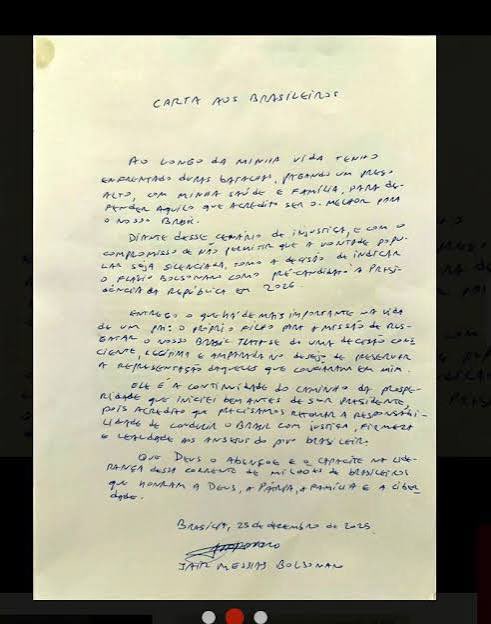 CARTA AOS BRASILEIROS
AO LONGO DA MINHA VIDA TENHO
ENFRENTADO DURAS BATALHAS, PAGANDO UM PREÇO
ALTO, COM MINHA SAÚDE E FAMÍLIA, PARA DE-
FENDER AQUILO QUE ACREDITO SER O MELHOR PARA
O NOSSO BRASIL.
DIANTE DESSE CENÁRIO DE INJUSTIÇA, E COM O
COMPROMISSO DE NÃO PERMITIR QUE A VONTADE POPU-
LAR SEJA SILENCIADA, TOMO A DECISÃO DE INDICAR
O FLÁVIO BOLSONARO COMO PRÉ-CANDIDATO A PRESI-
DÊNCIA DA REPÚBLICA EM 2026.
ENTREGO O QUE HÁ DE MAIS IMPORTANTE NA VIDA
DE UM PAI: O PRÓPRIO FILHO PARA A MISSÃO DE RES-
GATAR O NOSSO BRASIL. TRATA-SE DE UMA DECISÃO CONS
CIENTE, LEGÍTIMA E AMPARADA NO DESEJO DE PRESERVAR
A REPRESENTAÇÃO DAQUELES QUE CONFIARAM EM MIM.
ELE É A CONTINUIDADE DO CAMINHO DA PROSPE-
RIDADE QUE INICIEI BEM ANTES DE SER PRESIDENTE,
POIS ACREDITO QUE PRECISAMOS RETOMAR A RESPONSABI-
LIDADE DE CONDUZIR O BRASIL COM JUSTIÇA, FIRMEZA
E LEALDADE AOS ANSEIOS DO POVO BRASILEIRO.
QUE DEUS O ABENÇOE E O CAPACITE NA LIDE-
RANÇA DESSA CORRENTE DE MILHÕES DE BRASILEIROS
QUE HONRAM A DEUS, A PÁTRIA, A FAMÍLIA E A LIBER
DADE.
BRASÍLIA, 25 DE DEZEMBRO DE 2025
JAIR MESSIAS BOLSONARO